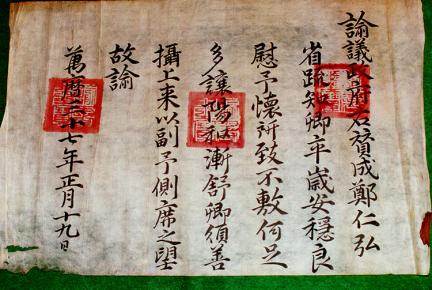 諭議政府右贊成鄭仁弘
省䟽知卿卒歲安穩良
慰予懷所致不敷何足
多讓陽和漸舒卿須善
攝上来以副予側席之望
故諭
萬曆三十七年正月十九日